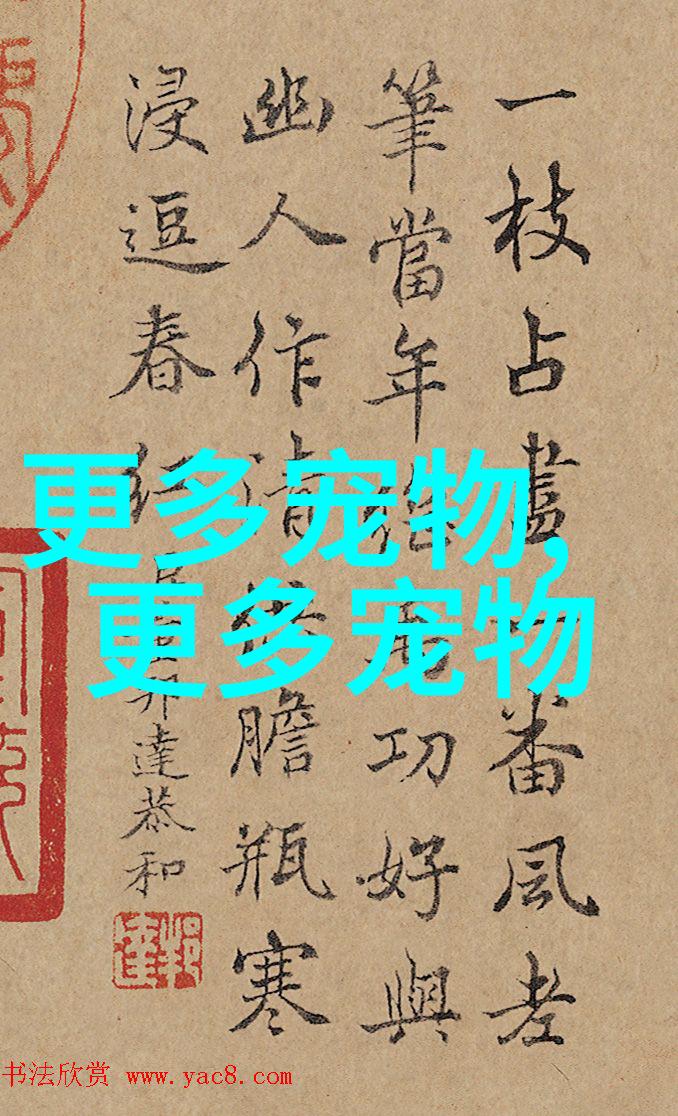 一枝占盡番風老
筆當年功好與
幽人作清供膽瓶寒
浸逗春紅臣董邦達恭和
邦達
更多宠物,
更多宠物
书法欣赏 www.yac8.com